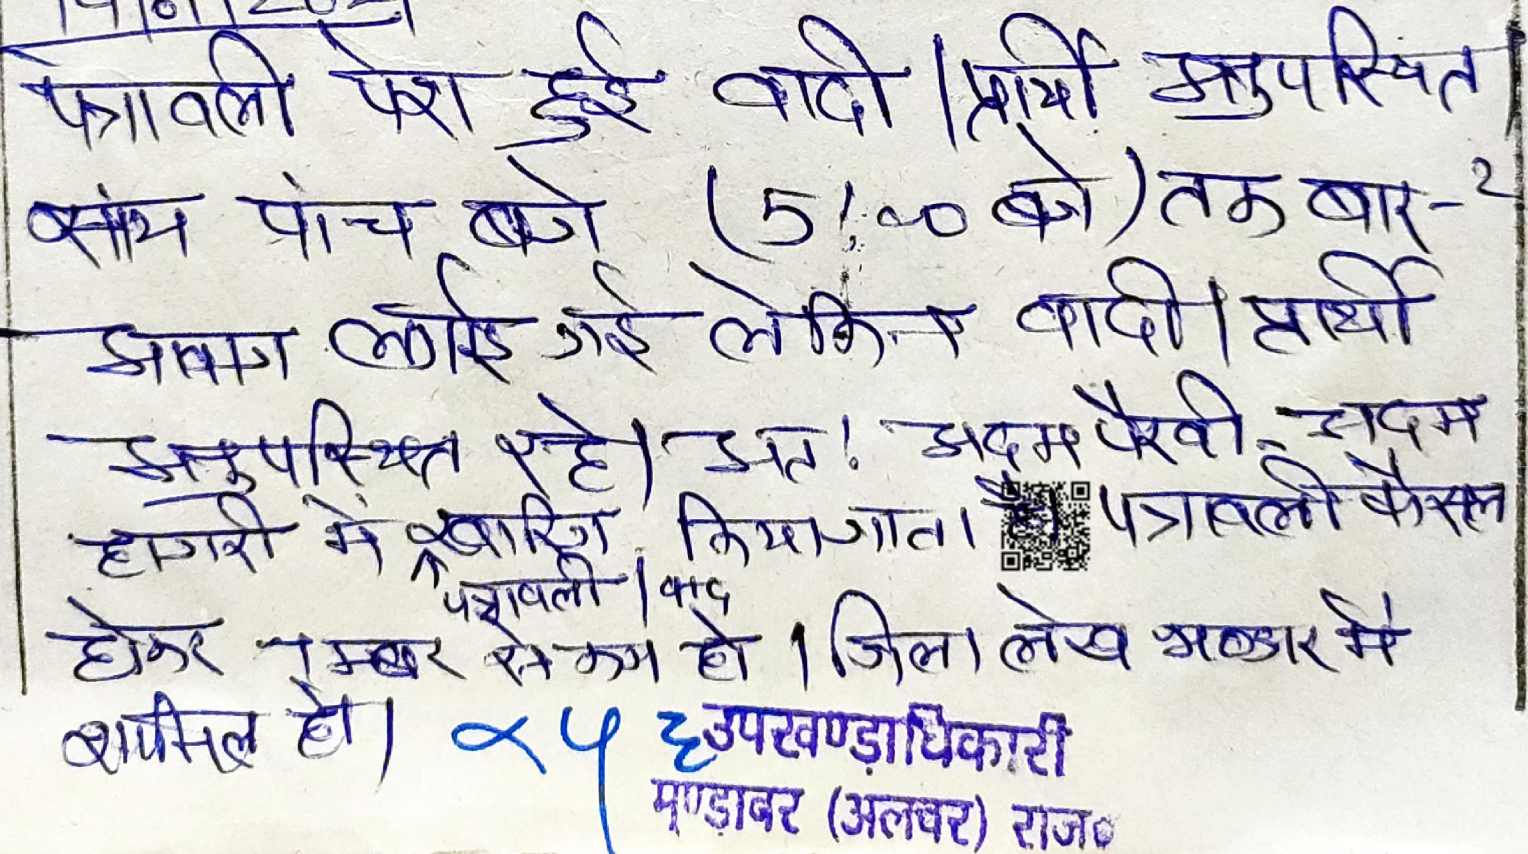 पत्रावली पेश हुई वादी/प्रार्थी अनुपस्थित।
सांय पांच बजे (5:00 बजे) तक बार-2
आवाज लगाई गई लेकिन वादी/प्रार्थी
अनुपस्थित रहे। अतः अदम पैरवी - अदम
हाजरी में खारिज किया जाता है। पत्रावली फैसल
पत्रावली/वाद
होकर नम्बर से कम हो। जिला लेख भण्डार में
शामिल हो।
उपखण्डाधिकारी
मुण्डावर (अलवर) राज०